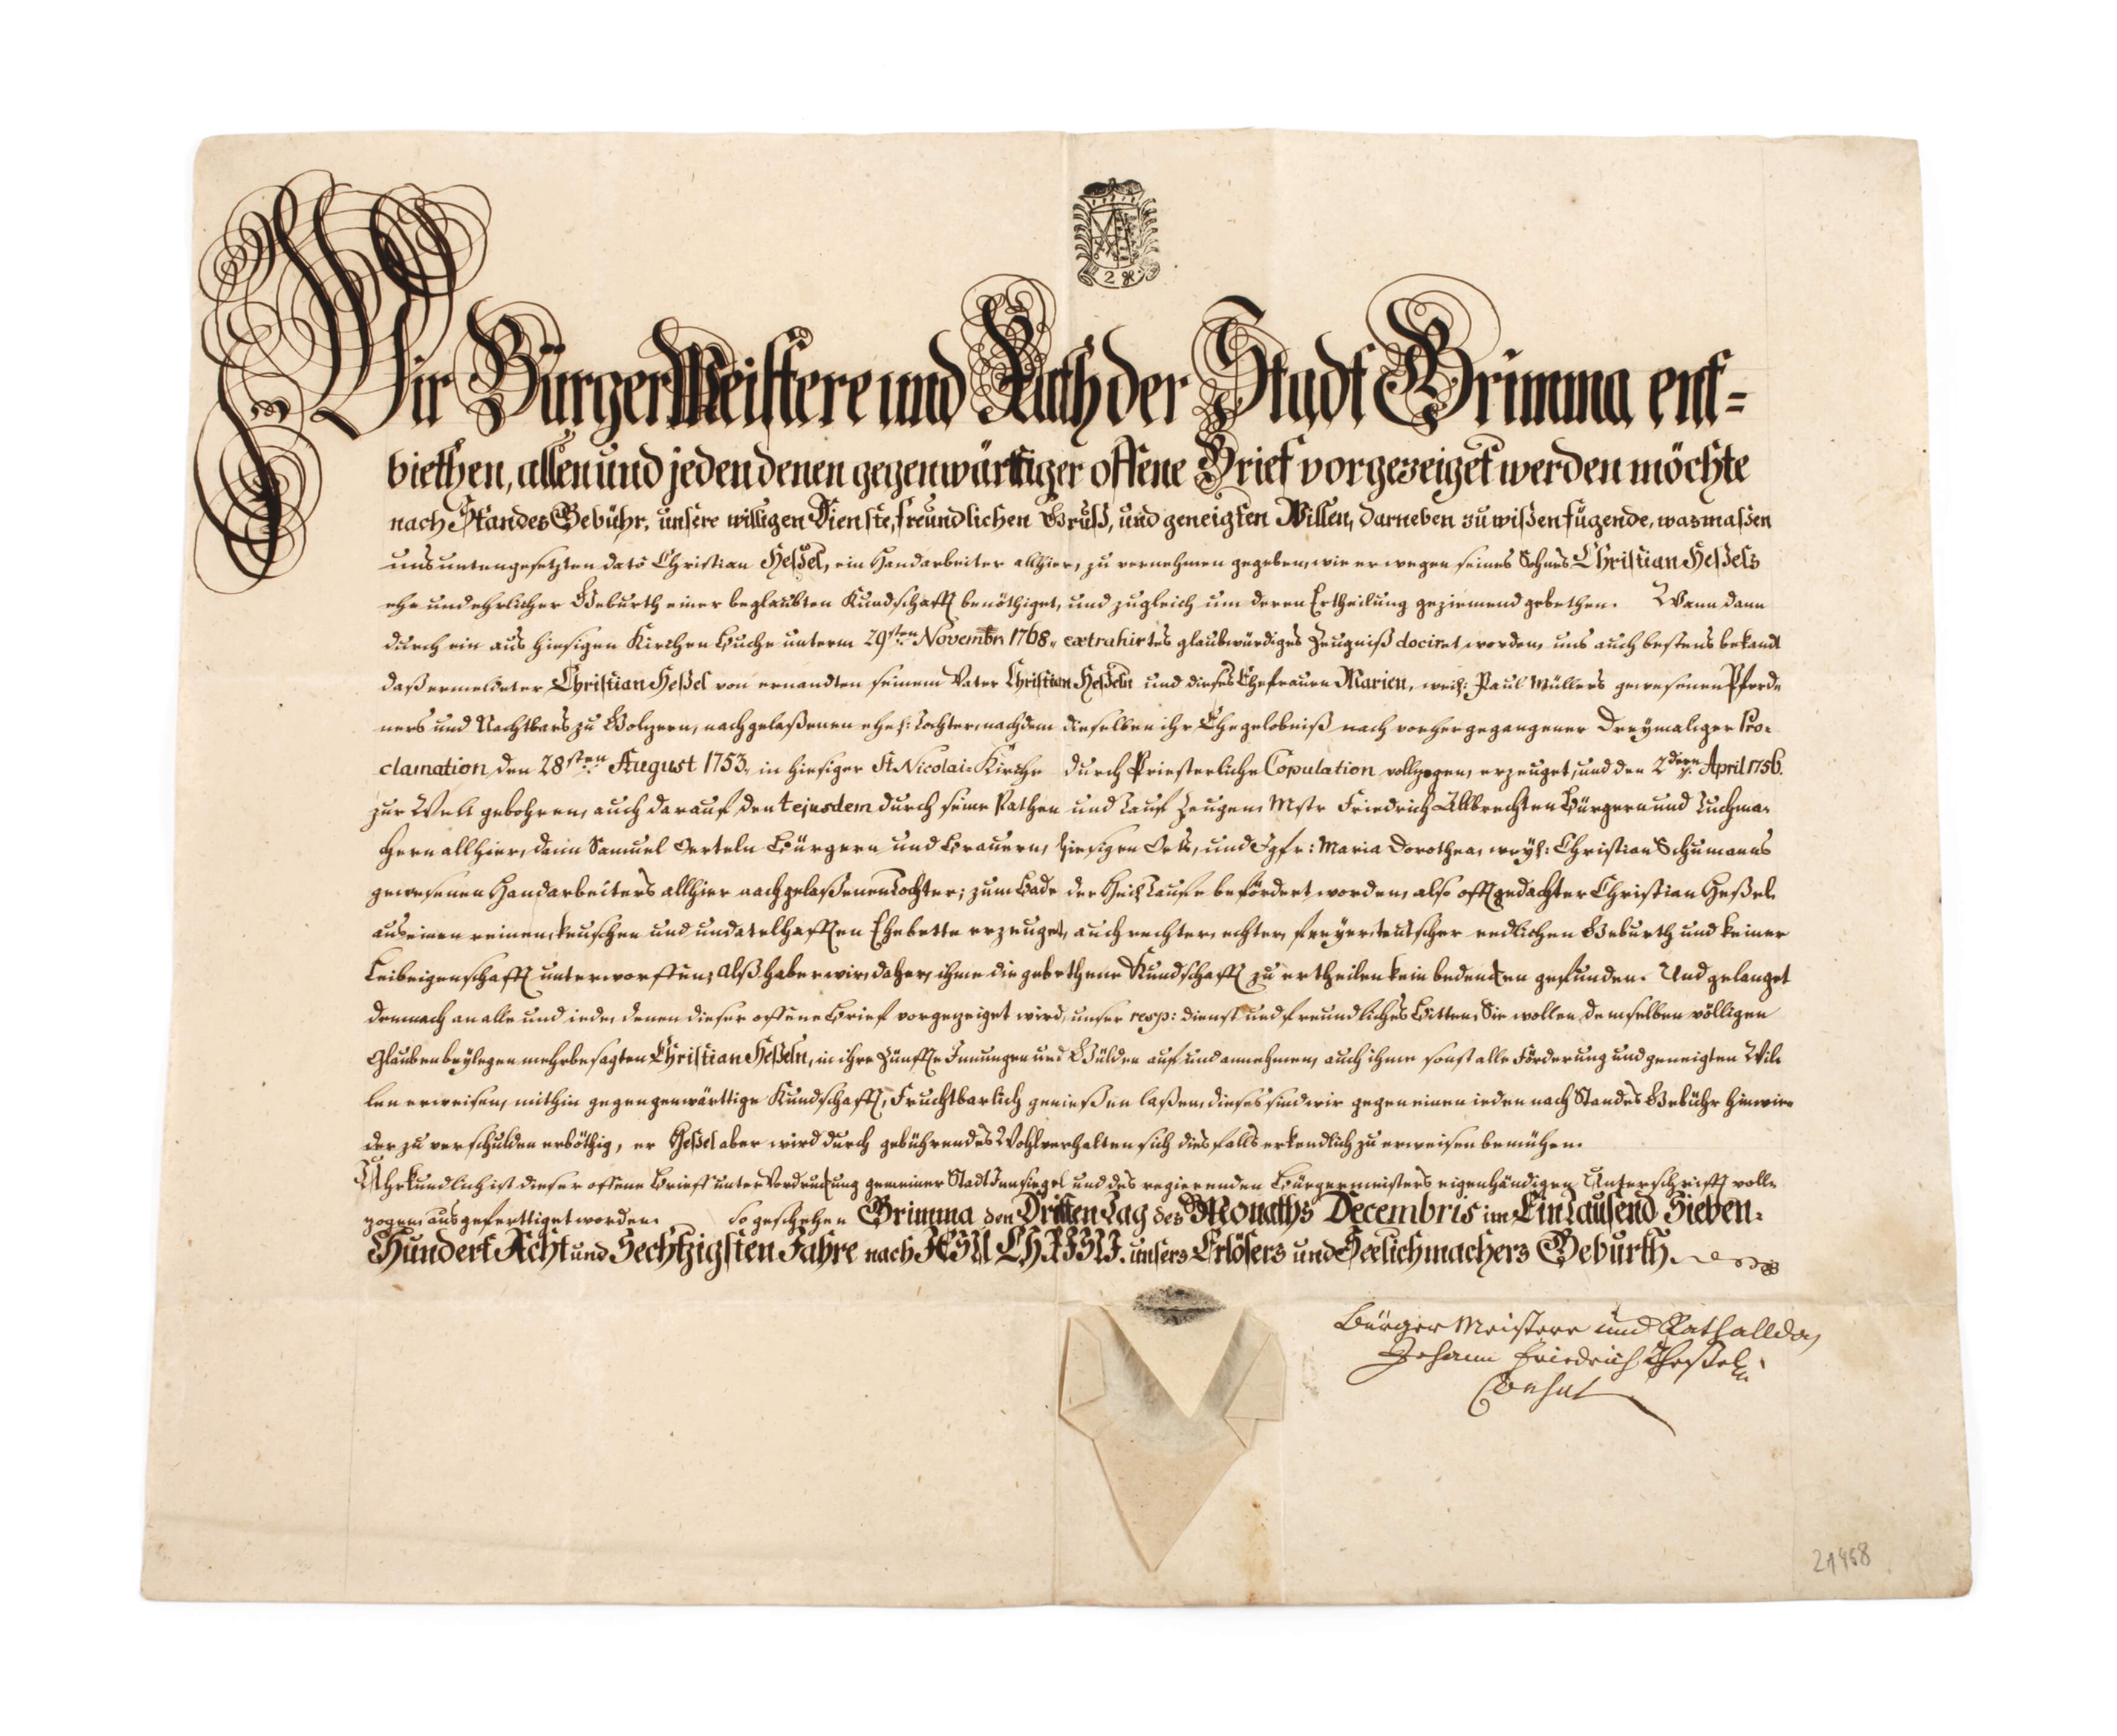 2 gr
Wir BürgerMeistere und Rath der Stadt Grimma ent=
biethen, allen und jeden denen gegenwärttiger offene Brief vorgezeiget werden möchte
nach Standes Gebühr, unsere willigen Dienste, freundlichen Gruß, und geneigten Willen, darneben zu wißen fügende, wasmaßen
uns untengesetzten dato Christian Heßel, ein Handarbeiter allhier, zu vernehmen gegeben, wie er wegen seines Sohns Christian Heßels
ehe und ehrlicher Geburth einer beglaubten Kundschafft benöthiget, und zugleich um deren Ertheilung geziemend gebethen. Wann dann
durch ein aus hiesigen Kirchen Buche unterm 29sten Novembr 1768. extrahirtes glaubwürdiges Zeugniß dociret worden, uns auch bestens bekandt
daß ermeldeter Christian Heßel von ernandten seinem Vater Christian Heßeln und dieses Ehefrauen Marien, weil: Paul Müllers gewesenen Pferde
ners und Nachtbars zu Golzern, nachgelaßenen ehel: Tochter, nachdem dieselben ihr Ehegelöbniß nach vorhergegangener dreymaliger Pro-
clamation, den 28sten August 1753. in hiesiger St. Nicolai=Kirche durch Priesterliche Copulation vollzogen, erzeuget, und den 2. April 1756.
zur Welt gebohren, auch darauf den ejusdem durch seine Pathen und Tauf Zeugen, Mstr Friedrich Albrechten Bürgern und Tuchma-
chern allhier, dann Samuel Oerteln Bürgern und Brauern, hiesigen Orts, und Jgfr: Maria Dorothea, weyl: Christian Schumanns
gewesenen Handarbeiters allhier nachgelaßenen Tochter; zum Bade der Heil. Taufe befördert worden, also offtgedachter Christian Heßel
aus einen reinen, keuschen und untadelhafften Ehebette erzeuget, auch rechter, echter, freyer, teutscher redlichen Geburth und keiner
Leibeigenschafft unterworffen; Alß haben wir, daher, ihme die gebethene Kundschafft zu ertheilen kein bedencken gefunden. Und gelanget
demnach an alle und iede, denen dieser offene Brief vorgezeiget wird, unser resp: dienst und freundliches Bitten, Sie wollen demselben völligen
Glauben beylegen mehrbesagten Christian Heßeln, in ihre Zünffte Innungen und Gülden auf und annehmen, auch ihme sonst alle Förderung und geneigten Wil-
len erweisen, mithin gegen genwärttige Kundschafft, Fruchtbarlich genießen laßen, dieses sind wir gegen einen ieden nach Standes Gebühr hinwie-
der zu verschulden erböthig, er Heßel aber wird durch gebührendes Wohlverhalten sich diesfalls erkendlich zu erweisen bemühen.
Uhrkundlich ist dieser offene Brieff unter Vordruckung gemeiner Stadt Innsiegel und des regierenden Bürgermeisters eigenhändigen Unterschrifft voll-
zogen, ausgeferttiget worden. So geschehen Grimma den Dritten Tag des Monaths Decembris im Ein Tausend Sieben-
Hundert Acht und Sechtzigsten Jahre nach JESU CHRISTI. unsers Erlösers und Seelichmachers Geburth.
Bürger Meistere und Rath allda
Johann Friedrich
Consul
21458